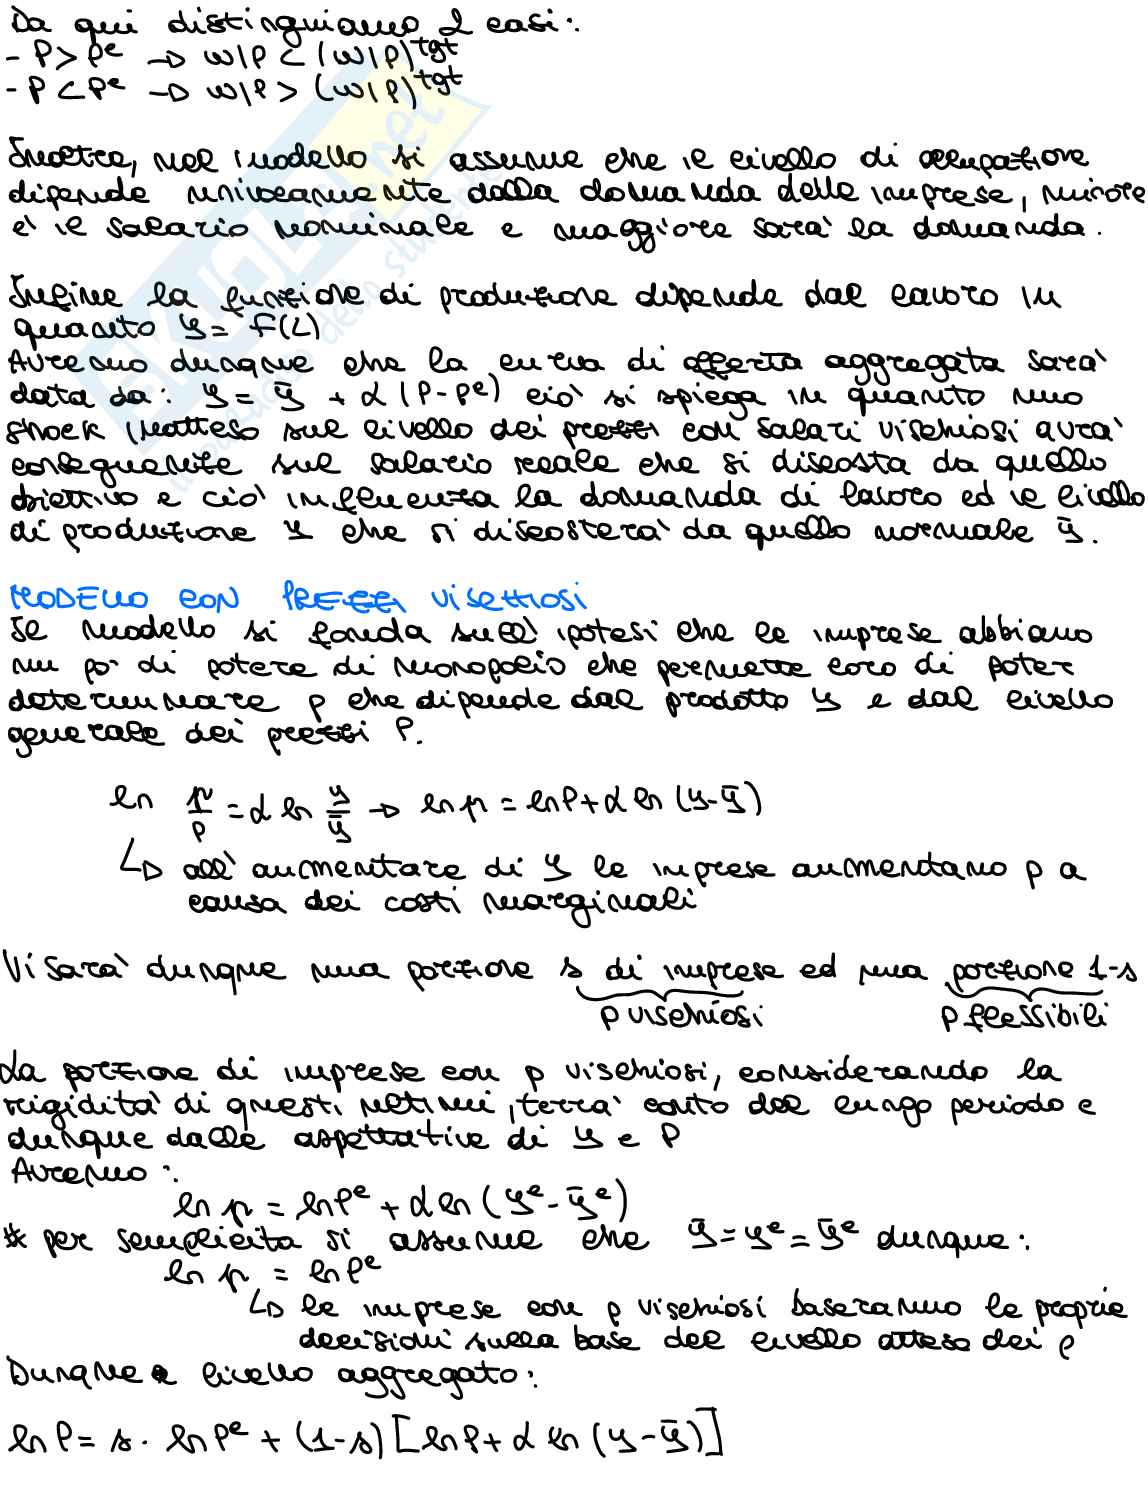 Da qui distinguiamo 2 casi:
- P > Pᵉ → W/P < (W/P)ᵗᵍᵗ
- P < Pᵉ → W/P > (W/P)ᵗᵍᵗ
Inoltre, nel modello si assume che il livello di occupazione
dipende unicamente dalla domanda delle imprese, minore
è il salario nominale e maggiore sarà la domanda.
Infine la funzione di produzione dipende dal lavoro in
quanto y = F(L)
Avremo dunque che la curva di offerta aggregata sarà
data da: y = ȳ + α (P - Pᵉ) ciò si spiega in quanto uno
shock inatteso sul livello dei prezzi con salari vischiosi avrà
conseguenze sul salario reale che si discosta da quello
obiettivo e ciò influenza la domanda di lavoro ed il livello
di produzione y che si discosterà da quello normale ȳ.
MODELLO CON PREZZI VISCHIOSI
Il modello si fonda sull'ipotesi che le imprese abbiano
un po' di potere di monopolio che permette loro di poter
determinare p che dipende dal prodotto y e dal livello
generale dei prezzi P.
ln p/P = α ln y/ȳ → ln p = ln P + α ln (y - ȳ)
↳ all'aumentare di y le imprese aumentano p a
causa dei costi marginali
Vi sarà dunque una porzione s di imprese ed una porzione 1-s
p vischiosi p flessibili
La porzione di imprese con p vischiosi, considerando la
rigidità di questi ultimi, terrà conto del lungo periodo e
dunque delle aspettative di y e P
Avremo:
ln p = ln Pᵉ + α ln (yᵉ - ȳᵉ)
* per semplicità si assume che ȳ = yᵉ = ȳᵉ dunque:
ln p = ln Pᵉ
↳ le imprese con p vischiosi baseranno le proprie
decisioni sulla base del livello atteso dei p
Dunque a livello aggregato:
ln P = s · ln Pᵉ + (1-s) [ln P + α ln (y - ȳ)]